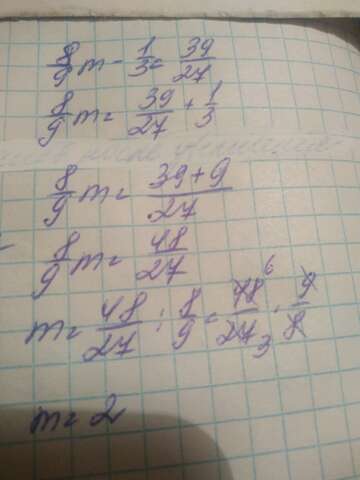 8/9 m - 1/3 = 39/27
8/9 m = 39/27 + 1/3
8/9 m = 39+9/27
8/9 m = 48/27
m = 48/27 : 8/9 = 48 6/27 3 · 9/8
m = 2